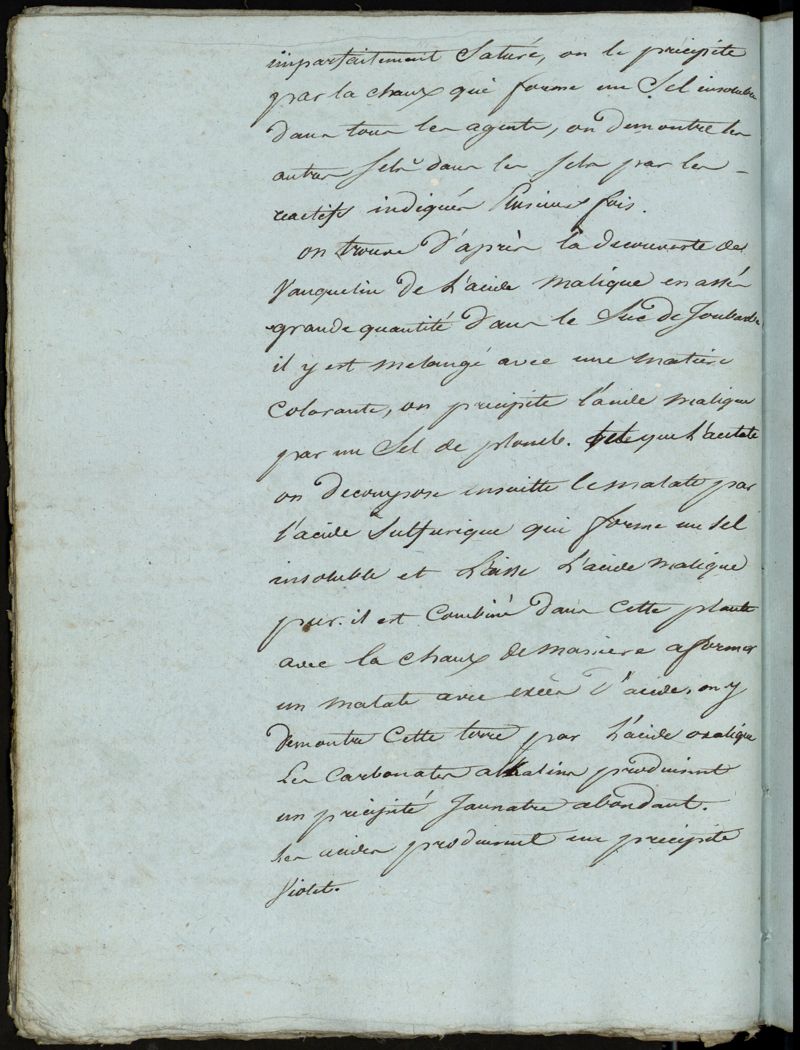 imparfaitement saturé, on le précipite
par la chaux qui forme un sel insoluble
dans tous les agents, on demontre les
autres sels dans les sels par les –
reactifs indiqués plusieurs fois.
on trouve d'après la decouverte de
Vauquelin de l'acide malique en assés
grande quantité dans le suc de Joubarbe
il y est melangé avec une matiere
colorante, on precipite l'acide malique
par un sel de plomb. tel que l'acetate
on decompose ensuitte le malate par
l'acide sulfurique qui forme un sel
insoluble et laisse l'acide malique
pur. il est combiné dans cette plante
avec la chaux de maniere a former
un malate avec excès d'acide, on y
demontre cette terre par l'acide oxalique
Les carbonates alkalins produisent
un précipité Jaunatre abondant.
les acides produisent un precipité
violet.